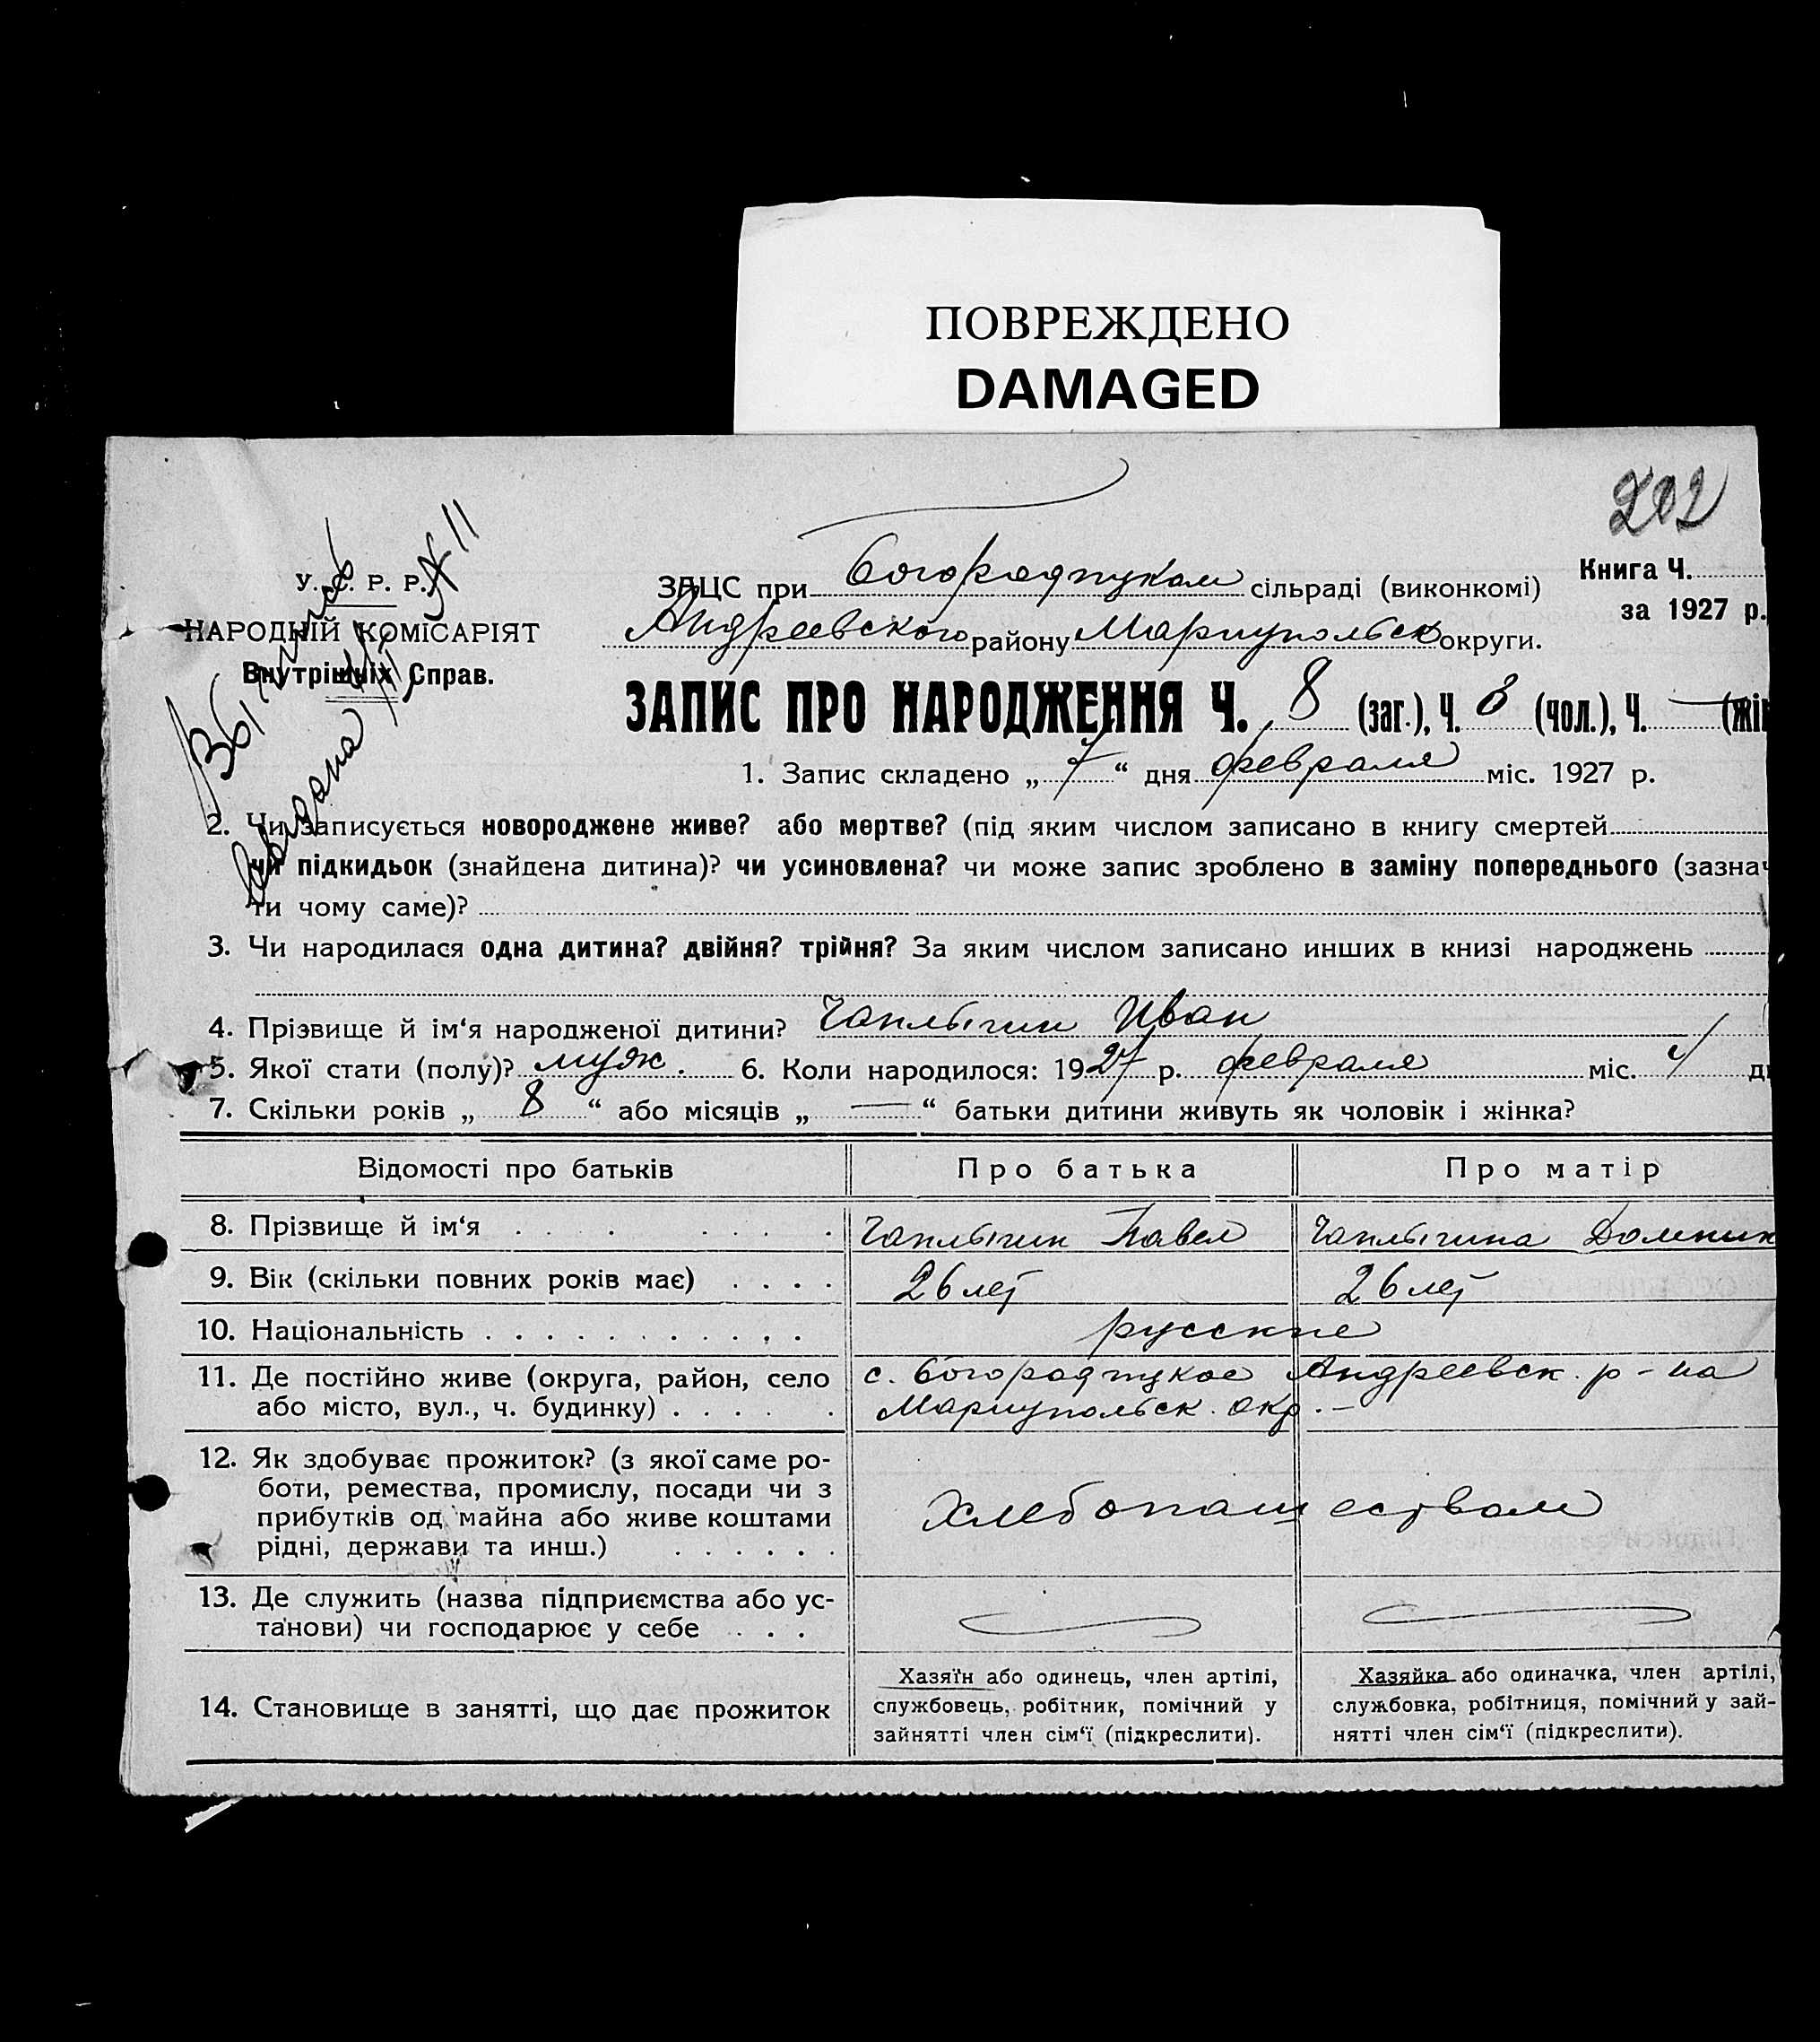 ПОВРЕЖДЕНО
DAMAGED
202
У. С. Р. Р.
НАРОДНІЙ КОМІСАРІЯТ
Внутрішніх Справ.
Выпись
выдана
N 11
ЗАЦС при Богородицком сільраді (виконкомі)
Андреевского району Мариупольск округи.
Книга Ч.
за 1927 р.
ЗАПИС ПРО НАРОДЖЕННЯ Ч. 8 (заг.), Ч. 8 (чол.), Ч. — (жін
1. Запис складено „ 7 “ дня февраля міс. 1927 р.
2. Чи записується новороджене живе? або мертве? (під яким числом записано в книгу смертей
чи підкидьок (знайдена дитина)? чи усиновлена? чи може запис зроблено в заміну попереднього (зазнач
ти чому саме)?
3. Чи народилася одна дитина? двійня? трійня? За яким числом записано инших в книзі народжень
4. Прізвище й ім‘я народженої дитини? Чаплыгин Иван
5. Якої стати (полу)? муж. 6. Коли народилося: 1927 р. февраля міс. 4
7. Скільки років „ 8 “ або місяців „ — “ батьки дитини живуть як чоловік і жінка?
Відомості про батьків Про батька Про матір
8. Прізвище й ім‘я Чаплыгин Павел Чаплыгина Домник
9. Вік (скільки повних років має) 26 лет 26 лет
10. Національність русские
11. Де постійно живе (округа, район, село с. Богородицкое Андреевск. р-на
або місто, вул., ч. будинку) Мариупольск. окр. —
12. Як здобуває прожиток? (з якої саме ро-
боти, ремества, промислу, посади чи з
прибутків од майна або живе коштами
рідні, держави та инш.)
Хлебопашеством
13. Де служить (назва підприємства або ус-
танови) чи господарює у себе
14. Становище в занятті, що дає прожиток
Хазяїн або одинець, член артілі,
службовець, робітник, помічний у
зайнятті член сім‘ї (підкреслити).
Хазяйка або одиначка, член артілі,
службовка, робітниця, помічний у зай-
нятті член сім‘ї (підкреслити).